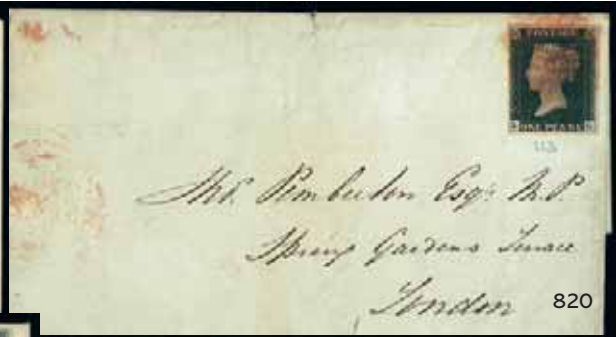 POSTAGE
ONE PENNY
113
Thos. Pemberton Esqr. M.P.
Spring Gardens Terrace
London
820